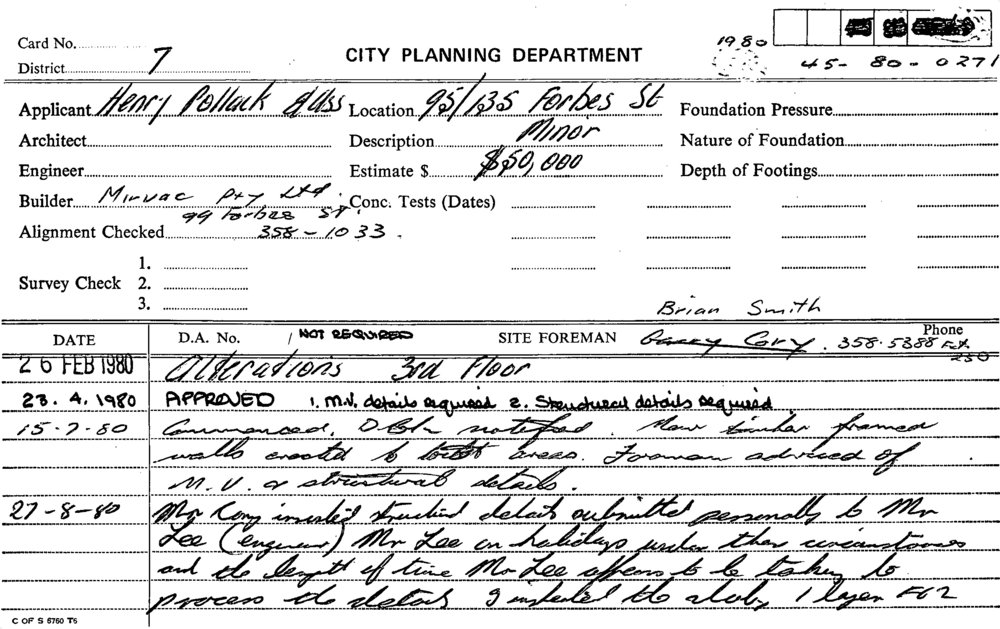 1980
45- 80- 0271
Card No.
District 7
CITY PLANNING DEPARTMENT
Applicant Henry Pollack & Ass
Location 95/135 Forbes St
Foundation Pressure
Architect
Description Minor
Nature of Foundation
Engineer
Estimate $ $50,000
Depth of Footings
Builder Mirvac Pty Ltd.
99 Forbes St.
Conc. Tests (Dates)
Alignment Checked 358-1033.
1.
Survey Check 2.
3.
Brian Smith
DATE D.A. No. NOT REQUIRED SITE FOREMAN Garry Cory. Phone 358.5388 Ext
250
26 FEB 1980 Alterations 3rd Floor
23. 4. 1980 APPROVED 1. M.V. details required 2. Structural details required
15-7-80 Commenced. notified. New timber framed
walls erected to toilet areas. Foreman advised of
M.V. & structural details.
27-8-80 Mr Cory insisted structural details submitted personally to Mr
Lee (engineer) Mr Lee on holidays under the circumstances
and the length of time Mr Lee appears to be taking to
process the details I inspected the slab, 1 layer F62
C OF S 6760 T6